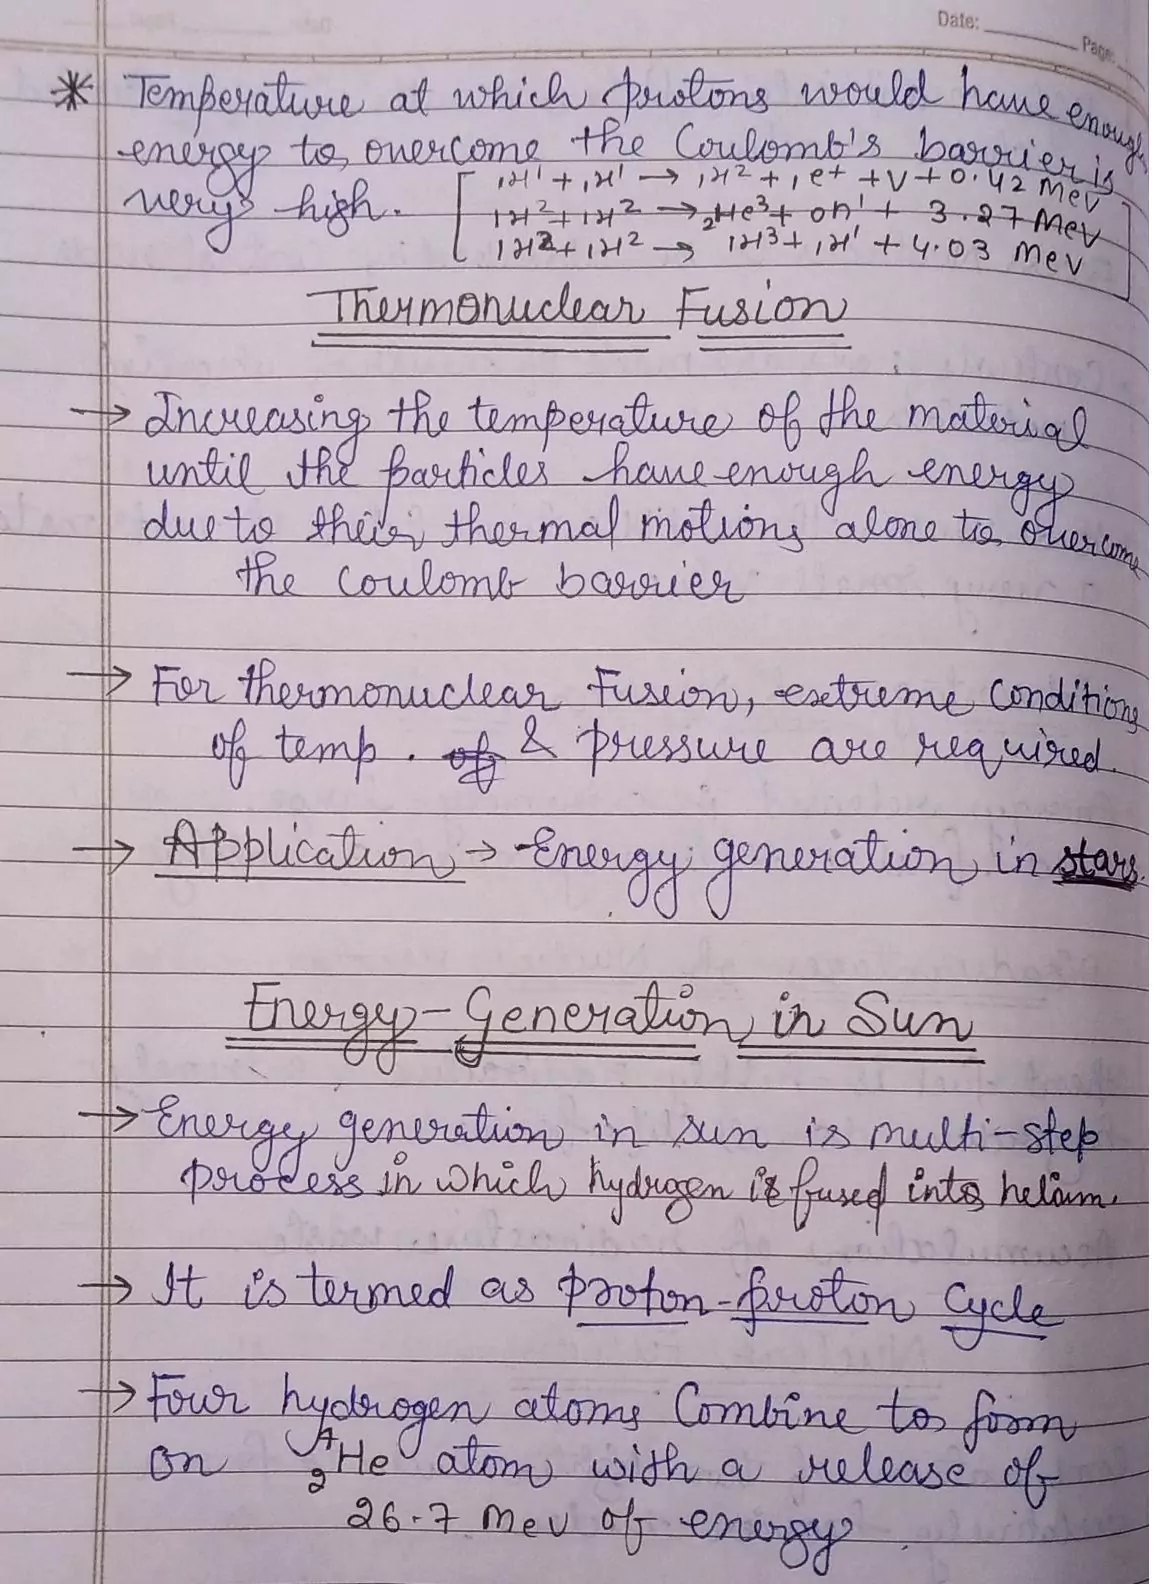 Date:
Page:
* Temperature at which protons would have enough
energy to overcome the Coulomb's barrier is
very high.
₁H¹ + ₁H¹ → ₁H² + ₁e⁺ + ν + 0.42 MeV
₁H² + ₁H² → ₂He³ + ₀n¹ + 3.27 MeV
₁H² + ₁H² → ₁H³ + ₁H¹ + 4.03 MeV
Thermonuclear Fusion
→ Increasing the temperature of the material
until the particles have enough energy
due to their thermal motions alone to overcome
the coulomb barrier
→ For thermonuclear Fusion, extreme conditions
of temp. & pressure are required.
→ Application → Energy generation in stars.
Energy-Generation in Sun
→ Energy generation in sun is multi-step
process in which hydrogen is fused into helium.
→ It is termed as proton-proton Cycle
→ Four hydrogen atoms Combine to form
on ⁴₂He atom with a release of
26.7 MeV of energy.